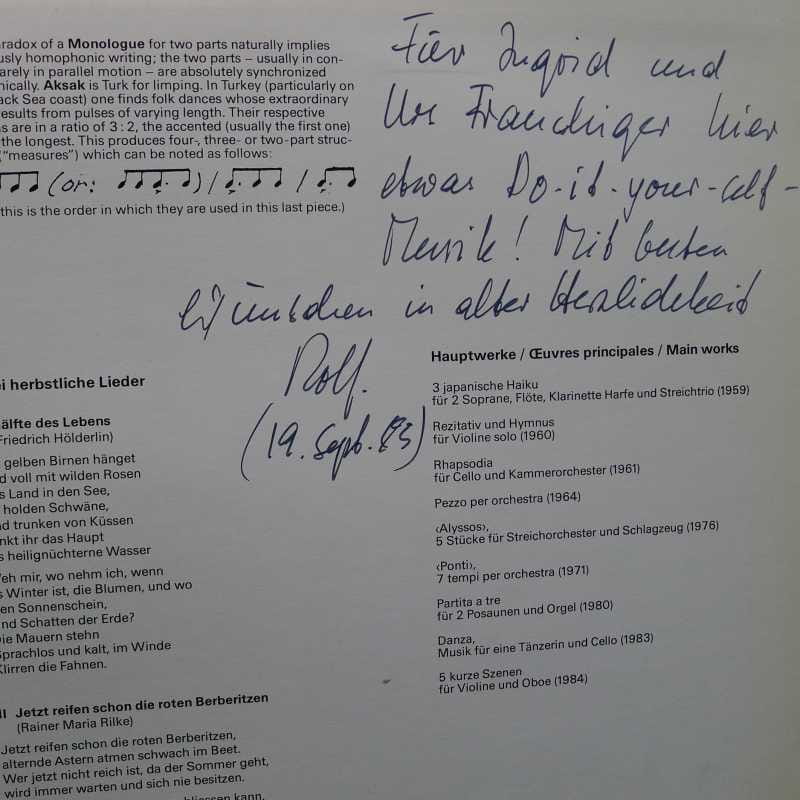 radox of a Monologue for two parts naturally implies
usly homophonic writing; the two parts – usually in con-
arely in parallel motion – are absolutely synchronized
nically. Aksak is Turk for limping. In Turkey (particularly on
ack Sea coast) one finds folk dances whose extraordinary
results from pulses of varying length. Their respective
s are in a ratio of 3:2, the accented (usually the first one)
the longest. This produces four-, three- or two-part struc-
(“measures”) which can be noted as follows:
(or: ) / /
this is the order in which they are used in this last piece.)
Für Ingrid und
Urs Frauchiger hier
etwas Do-it-your-self-
Musik! Mit besten
Wünschen in alter Herzlichkeit
Rolf.
(19. Sept. 85)
ei herbstliche Lieder
älfte des Lebens
Friedrich Hölderlin)
gelben Birnen hänget
d voll mit wilden Rosen
s Land in den See,
holden Schwäne,
nd trunken von Küssen
nkt ihr das Haupt
s heilignüchterne Wasser
eh mir, wo nehm ich, wenn
s Winter ist, die Blumen, und wo
en Sonnenschein,
nd Schatten der Erde?
Die Mauern stehn
Sprachlos und kalt, im Winde
Klirren die Fahnen.
II Jetzt reifen schon die roten Berberitzen
(Rainer Maria Rilke)
Jetzt reifen schon die roten Berberitzen,
alternde Astern atmen schwach im Beet.
Wer jetzt nicht reich ist, da der Sommer geht,
wird immer warten und sich nie besitzen.
Hauptwerke / Œuvres principales / Main works
3 japanische Haiku
für 2 Soprane, Flöte, Klarinette Harfe und Streichtrio (1959)
Rezitativ und Hymnus
für Violine solo (1960)
Rhapsodia
für Cello und Kammerorchester (1961)
Pezzo per orchestra (1964)
‹Alyssos›,
5 Stücke für Streichorchester und Schlagzeug (1976)
‹Ponti›,
7 tempi per orchestra (1971)
Partita a tre
für 2 Posaunen und Orgel (1980)
Danza,
Musik für eine Tänzerin und Cello (1983)
5 kurze Szenen
für Violine und Oboe (1984)